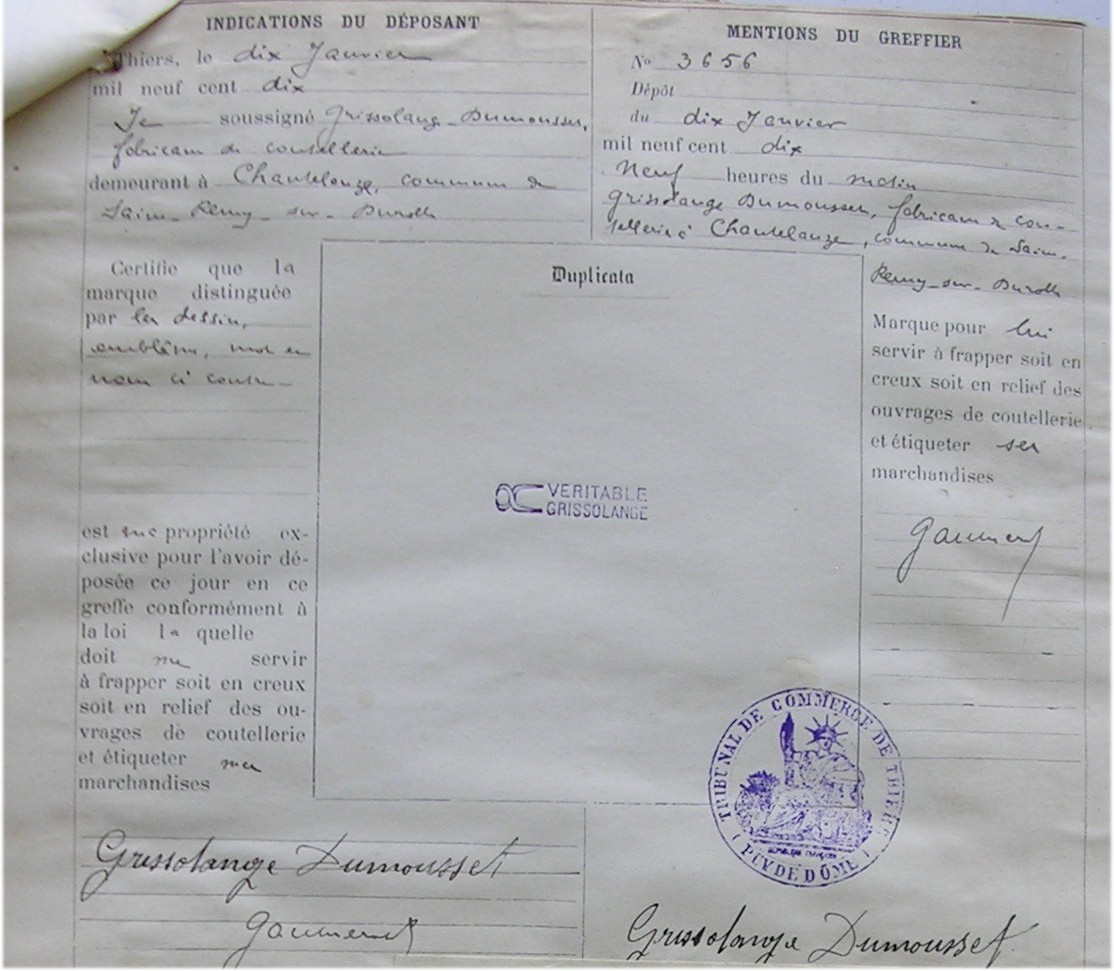 INDICATIONS DU DÉPOSANT
Thiers, le dix Janvier
mil neuf cent dix
Je soussigné Grissolange-Dumousset,
fabricant de coutellerie
demeurant à Chantelauze, commune de
Saint-Remy-sur-Durolle
Certifie que la
marque distinguée
par les dessin,
emblême, mot et
nom ci contre
est ma propriété ex-
clusive pour l'avoir dé-
posée ce jour en ce
greffe conformément à
la loi la quelle
doit me servir
à frapper soit en creux
soit en relief des ou-
vrages de coutellerie
et étiqueter mes
marchandises
Grissolange Dumousset
MENTIONS DU GREFFIER
No 3656
Dépôt
du dix Janvier
mil neuf cent dix
Neuf heures du matin
Grissolange Dumousset, fabricant de cou-
tellerie à Chantelauze, commune de Saint-
Remy-sur-Durolle
Marque pour lui
servir à frapper soit en
creux soit en relief des
ouvrages de coutellerie
et étiqueter ses
marchandises
Duplicata
VERITABLE
GRISSOLANGE
TRIBUNAL DE COMMERCE DE THIERS
(PUY DE DÔME)
RÉPUBLIQUE FRANÇAISE
Grissolange Dumousset